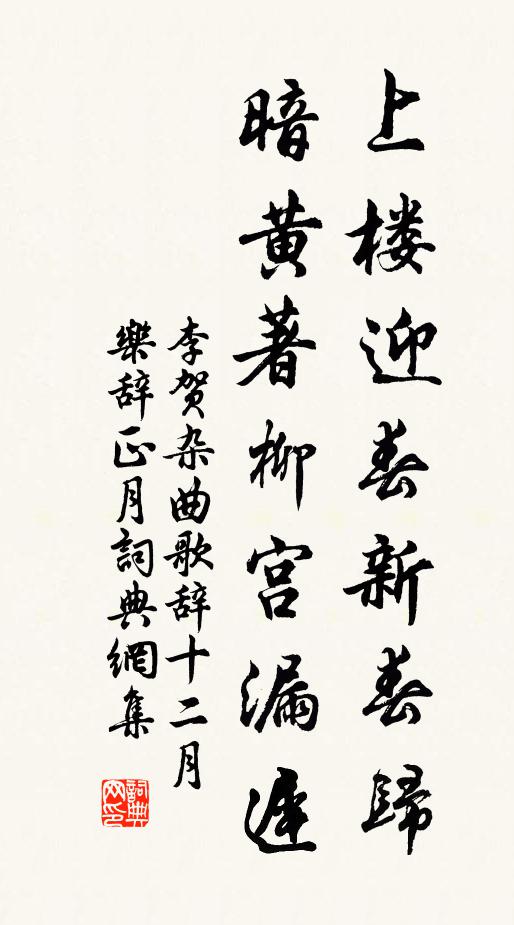 上楼迎春新春歸
暗黄著柳宫漏遲
李贺杂曲歌辞十二月
樂辞正月詞典網集
詞典网印